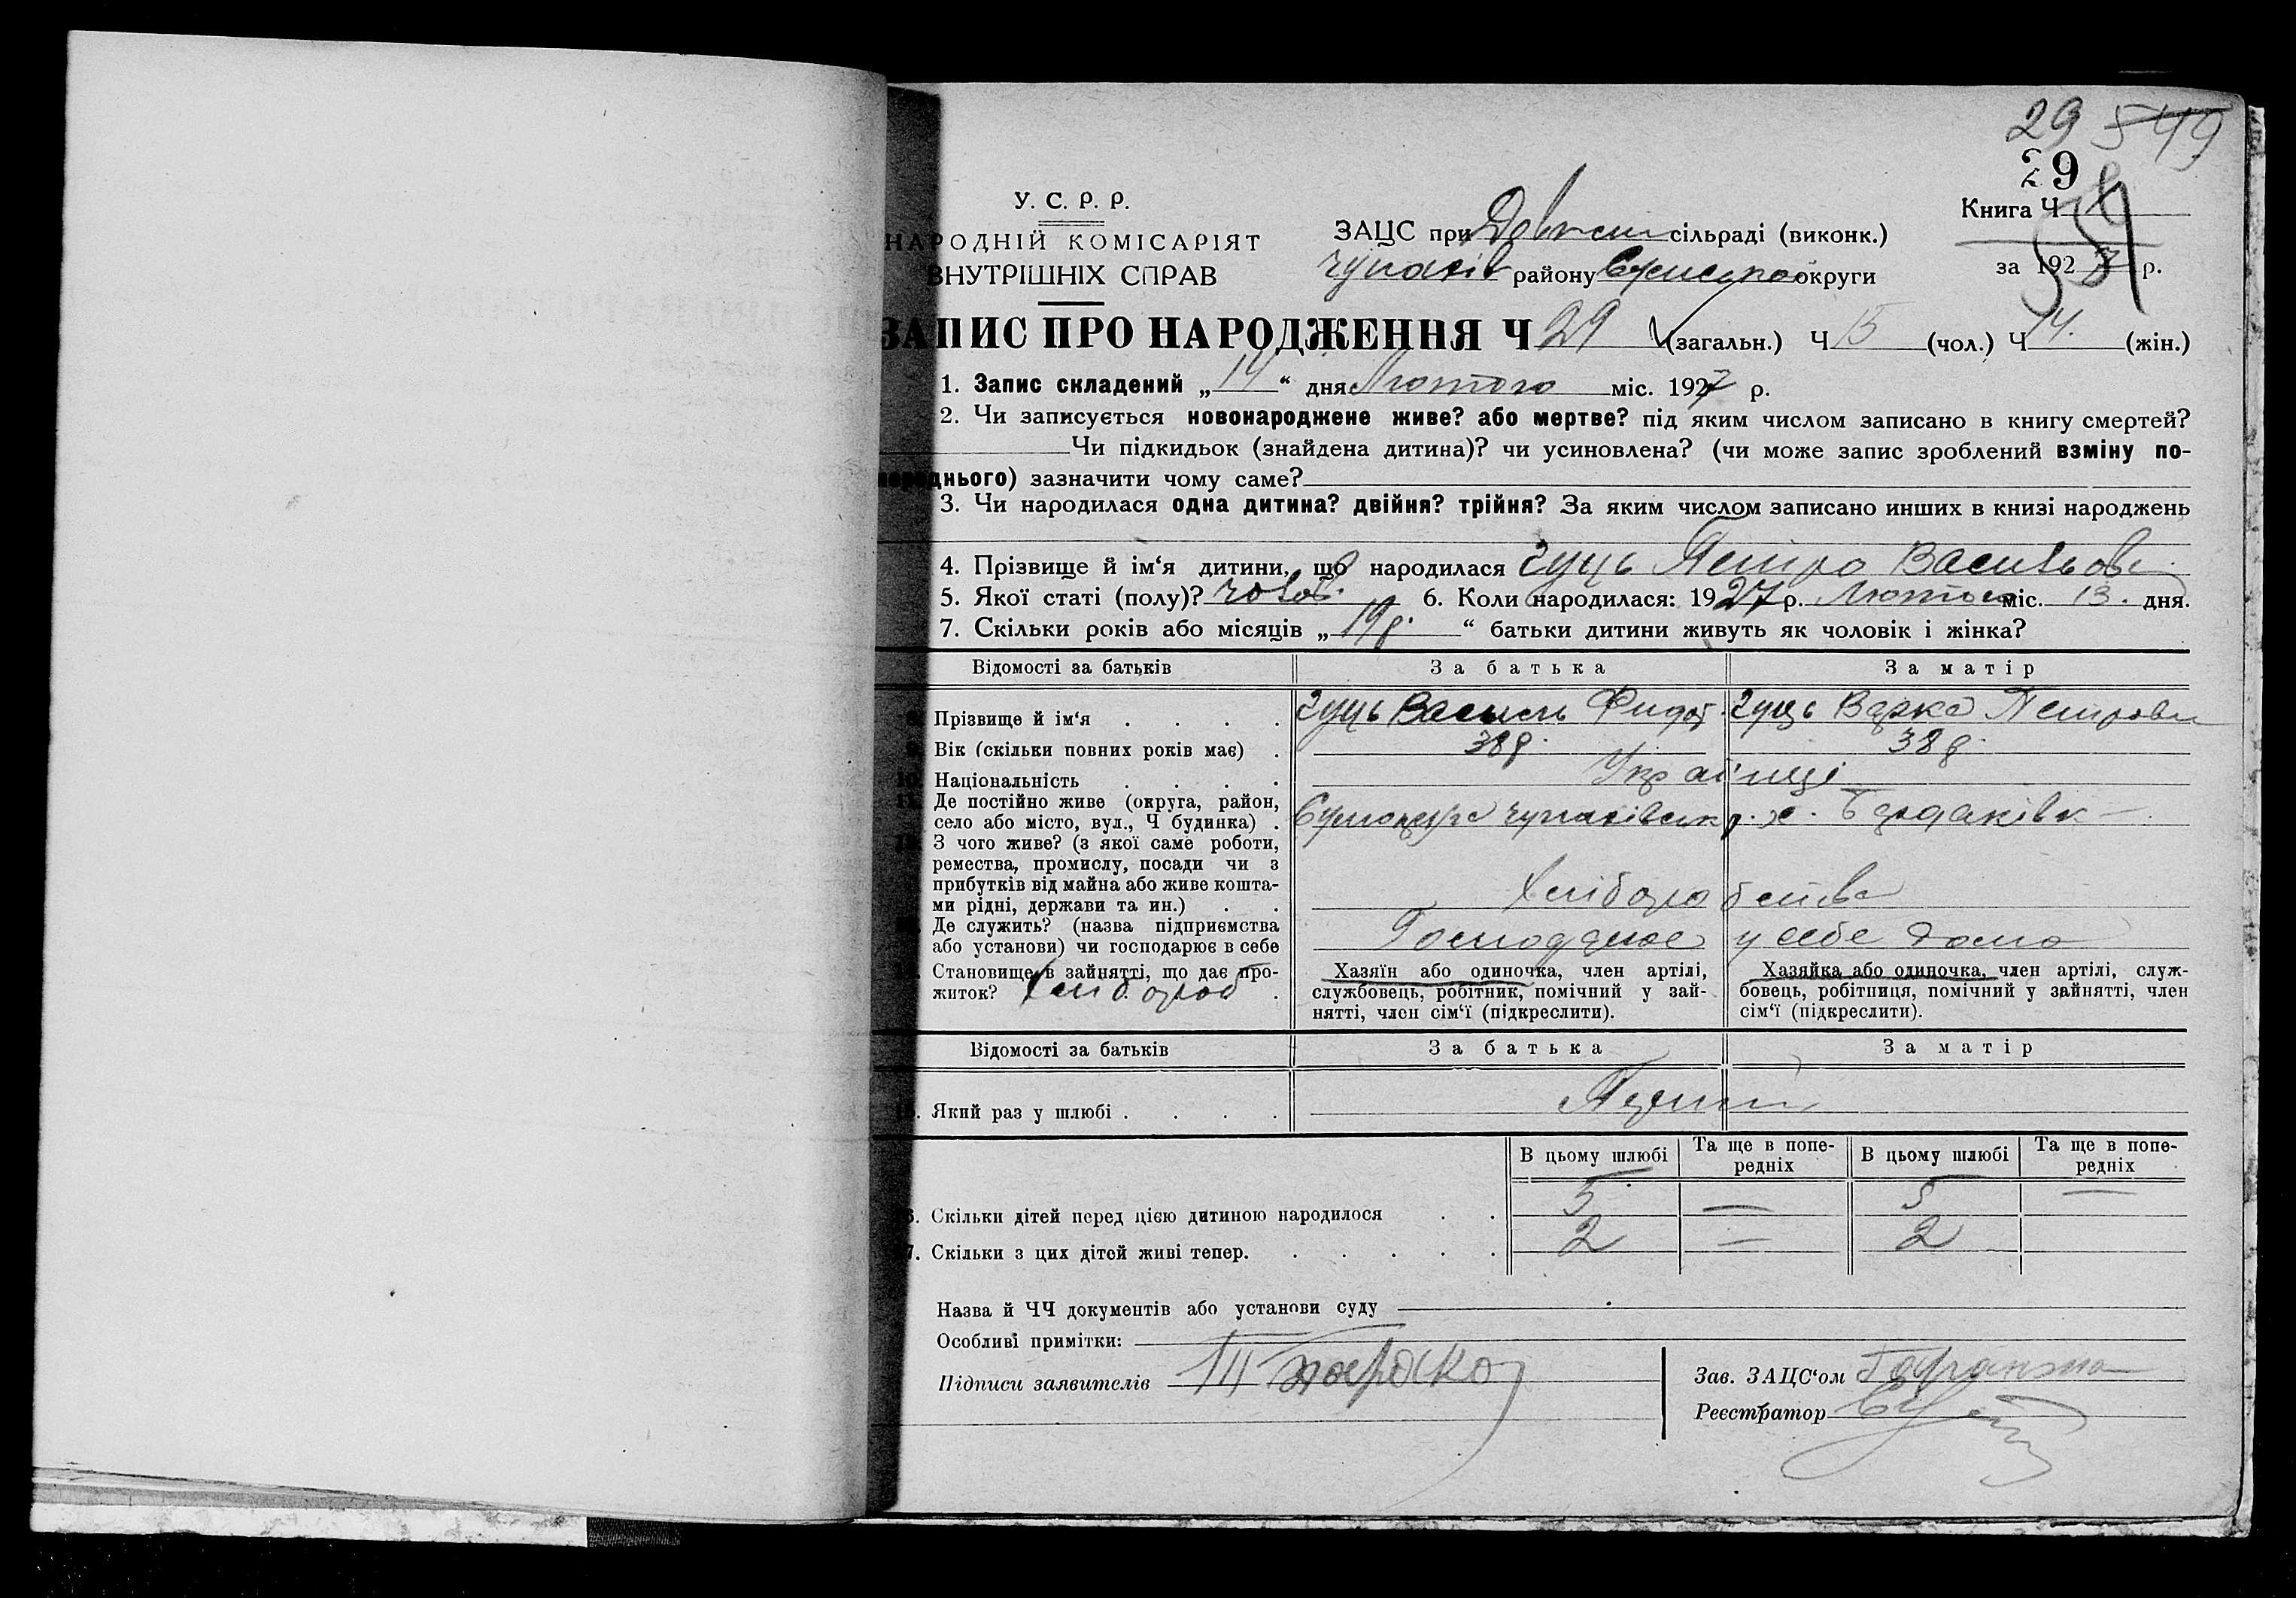 29 549
29
У. С. Р. Р.
НАРОДНІЙ КОМІСАРІЯТ
ВНУТРІШНІХ СПРАВ
ЗАЦС при сільраді (виконк.)
Чупахів району Сумської округи
Книга Ч
за 1927 р.
ЗАПИС ПРО НАРОДЖЕННЯ Ч 29 (загальн.) Ч 15 (чол.) Ч 14. (жін.)
1. Запис складений „ 14 “ дня Лютого міс. 1927 р.
2. Чи записується новонароджене живе? або мертве? під яким числом записано в книгу смертей?
Чи підкидьок (знайдена дитина)? чи усиновлена? (чи може запис зроблений взміну по-
переднього) зазначити чому саме?
3. Чи народилася одна дитина? двійня? трійня? За яким числом записано инших в книзі народжень
4. Прізвище й ім‘я дитини, що народилася Гуць Петро Васильов
5. Якої статі (полу)? чолов. 6. Коли народилася: 1927 р. Лютого міс. 13. дня.
7. Скільки років або місяців „ 19 р. “ батьки дитини живуть як чоловік і жінка?
Відомості за батьків За батька За матір
8. Прізвище й ім‘я Гуць Василь Федот. Гуць Варка Петровн
9. Вік (скільки повних років має) 38 р. 38 р.
10. Національність Українці
11. Де постійно живе (округа, район,
село або місто, вул., Ч будинка) Чупахівськ р. х. Бардаківк
12. З чого живе? (з якої саме роботи,
ремества, промислу, посади чи з
прибутків від майна або живе кошта-
ми рідні, держави та ин.) Хліборобства
Де служить? (назва підприємства
або установи) чи господарює в себе Господарює у себе дома
Становище в зайнятті, що дає про-
житок? Хлібороб
Хазяїн або одиночка, член артілі,
службовець, робітник, помічний у зай-
нятті, член сім‘ї (підкреслити).
Хазяйка або одиночка, член артілі, служ-
бовець, робітниця, помічний у зайнятті, член
сім‘ї (підкреслити).
Відомості за батьків За батька За матір
Який раз у шлюбі Перший
В цьому шлюбі Та ще в попе-
редніх В цьому шлюбі Та ще в попе-
редніх
6. Скільки дітей перед цією дитиною народилося 5 — 5 —
7. Скільки з цих дітей живі тепер. 2 — 2
Назва й ЧЧ документів або установи суду
Особливі примітки:
Підписи заявителів
Зав. ЗАЦС‘ом
Реєстратор